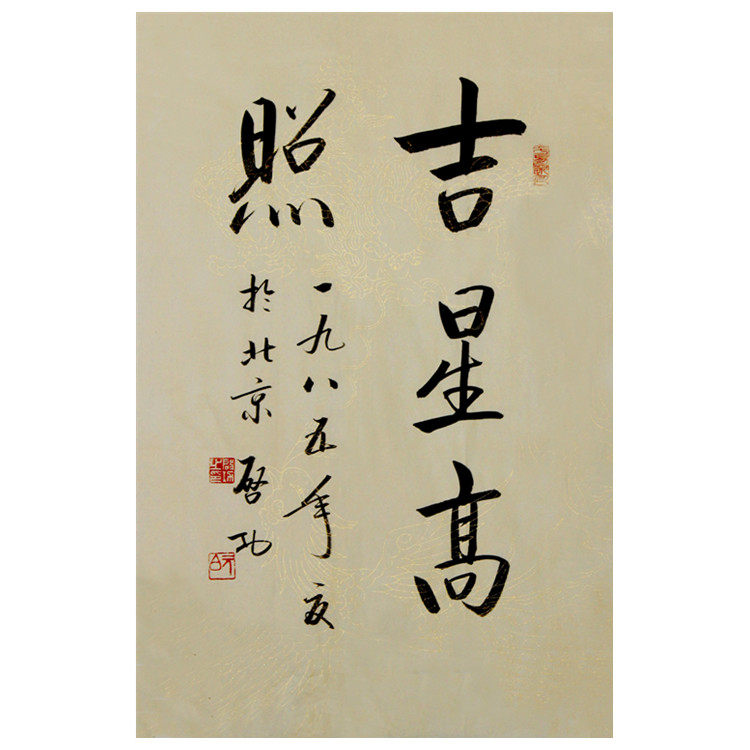 吉星高
照
一九八五年夏
於北京啓功